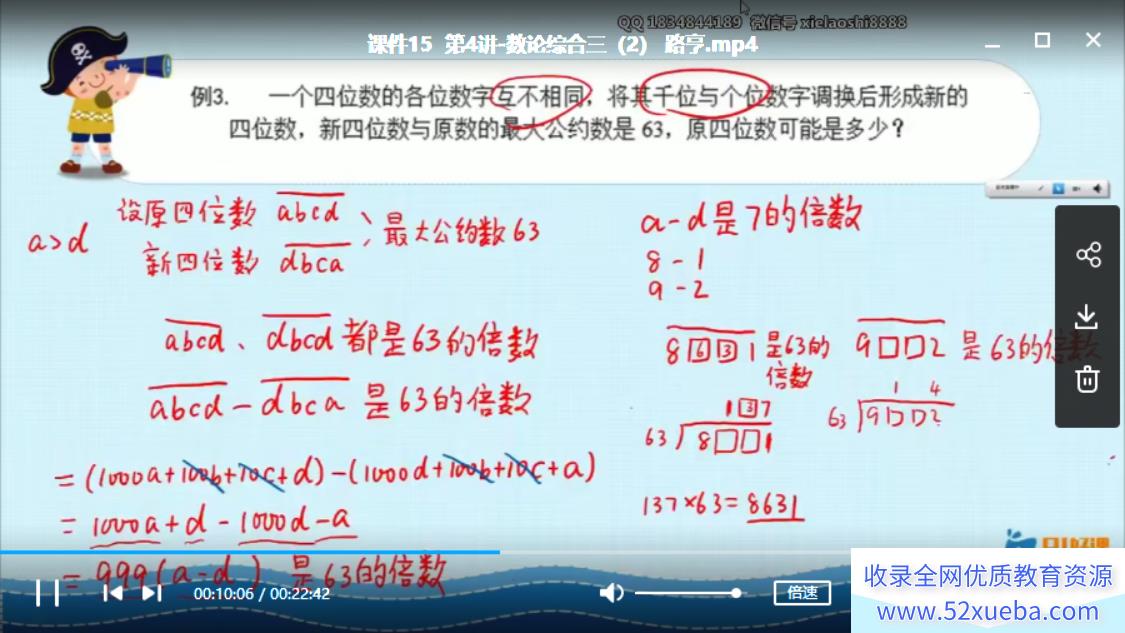 QQ 1834844189 微信号 xielaoshi8888
课件15 第4讲-数论综合三（2） 路亨.mp4
例3. 一个四位数的各位数字互不相同，将其千位与个位数字调换后形成新的
四位数，新四位数与原数的最大公约数是 63，原四位数可能是多少？
a>d
设原四位数 abcd
新四位数 dbca
最大公约数 63
abcd、dbcd 都是63的倍数
abcd - dbca 是63的倍数
= (1000a+100b+10c+d) - (1000d+100b+10c+a)
= 1000a+d - 1000d - a
= 999(a-d) 是63的倍数
a-d是7的倍数
8 - 1
9 - 2
8 6 3 1 是63的
倍数
9□□2 是63的倍数
1 3 7
63 8□□1
1 4
63 9□□2
137×63=8631
00:10:06 / 00:22:42
倍速
收录全网优质教育资源
www.52xueba.com